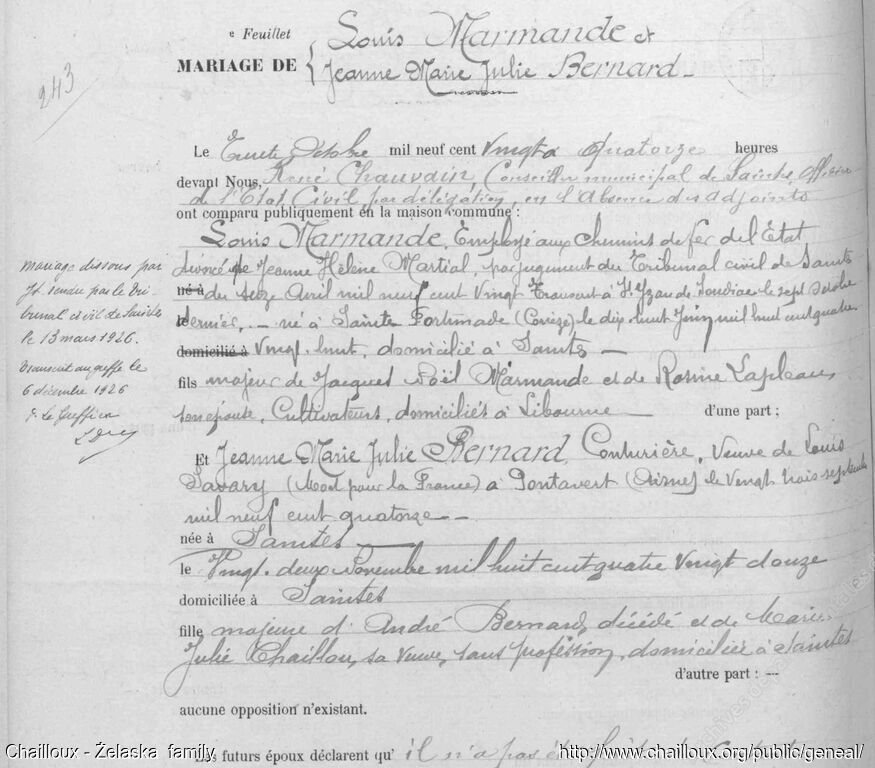 e Feuillet
MARIAGE DE { Louis Marmande et
Jeanne Marie Julie Bernard
243
Le Trente Octobre mil neuf cent Vingt à Quatorze heures
devant Nous, René Chauvain, Conseiller municipal de Saintes, Officier
de l'Etat Civil par délégation, en l'Absence des adjoints
ont comparu publiquement en la maison commune :
Louis Marmande, Employé aux chemins de fer de l'État
divorcé de Jeanne Hélène Martial, par jugement du Tribunal civil de Saintes
né à du Seize Avril mil neuf cent Vingt Transcrit à St Yzan de Soudiac le sept Octobre
le dernier, - né à Sainte Fortunade (Corrèze) le dix huit Juin mil huit cent quatre
domicilié à Vingt. huit, domicilié à Saintes -
fils majeur de Jacques Noël Marmande et de Rosine Lapleau
son épouse, Cultivateurs, domiciliés à Libourne - d'une part ;
mariage dissous par
Jt rendu par le Tri-
bunal civil de Saintes
le 13 mars 1926.
transcrit au greffe le
6 décembre 1926
Le Greffier
Et Jeanne Marie Julie Bernard, Couturière, Veuve de Louis
Savary (Mort pour la France) à Pontavert (Aisne) le Vingt trois septembre
mil neuf cent quatorze -
née à Saintes -
le Vingt. deux Novembre mil huit cent quatre Vingt douze
domiciliée à Saintes
fille majeure d'André Bernard, décédé et de Marie
Julie Chaillou, sa veuve, sans profession, domiciliée à Saintes
d'autre part : -
aucune opposition n'existant.
Les futurs époux déclarent qu'il n'a pas été
Chailloux - Żelaska family
http://www.chailloux.org/public/geneal/